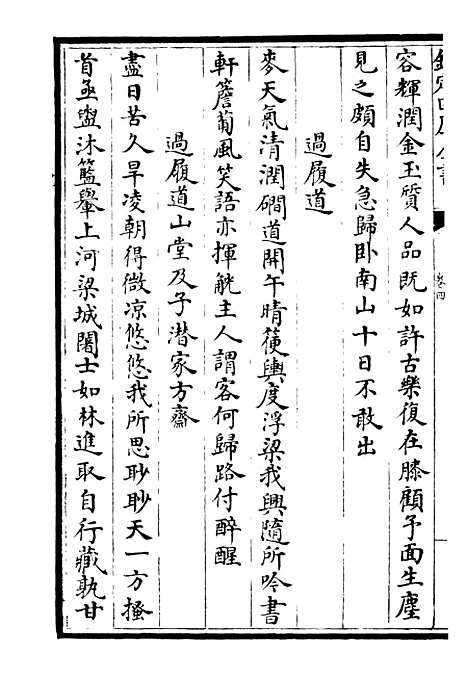 欽定四庫全書
卷四
容輝潤金玉質人品既如許古樂復在膝顧予面生塵
見之頗自失急歸卧南山十日不敢出
過履道
麥天氣清潤磵道開午晴䓞輿度浮梁我興隨所吟書
軒簷蔔風笑語亦揮觥主人謂客何歸路付醉醒
過履道山堂及子潛家方齋
盡日苦久旱凌朝得微凉悠悠我所思眇眇天一方搔
首亟盥沐籃轝上河梁城闉士如林進取自行藏孰甘